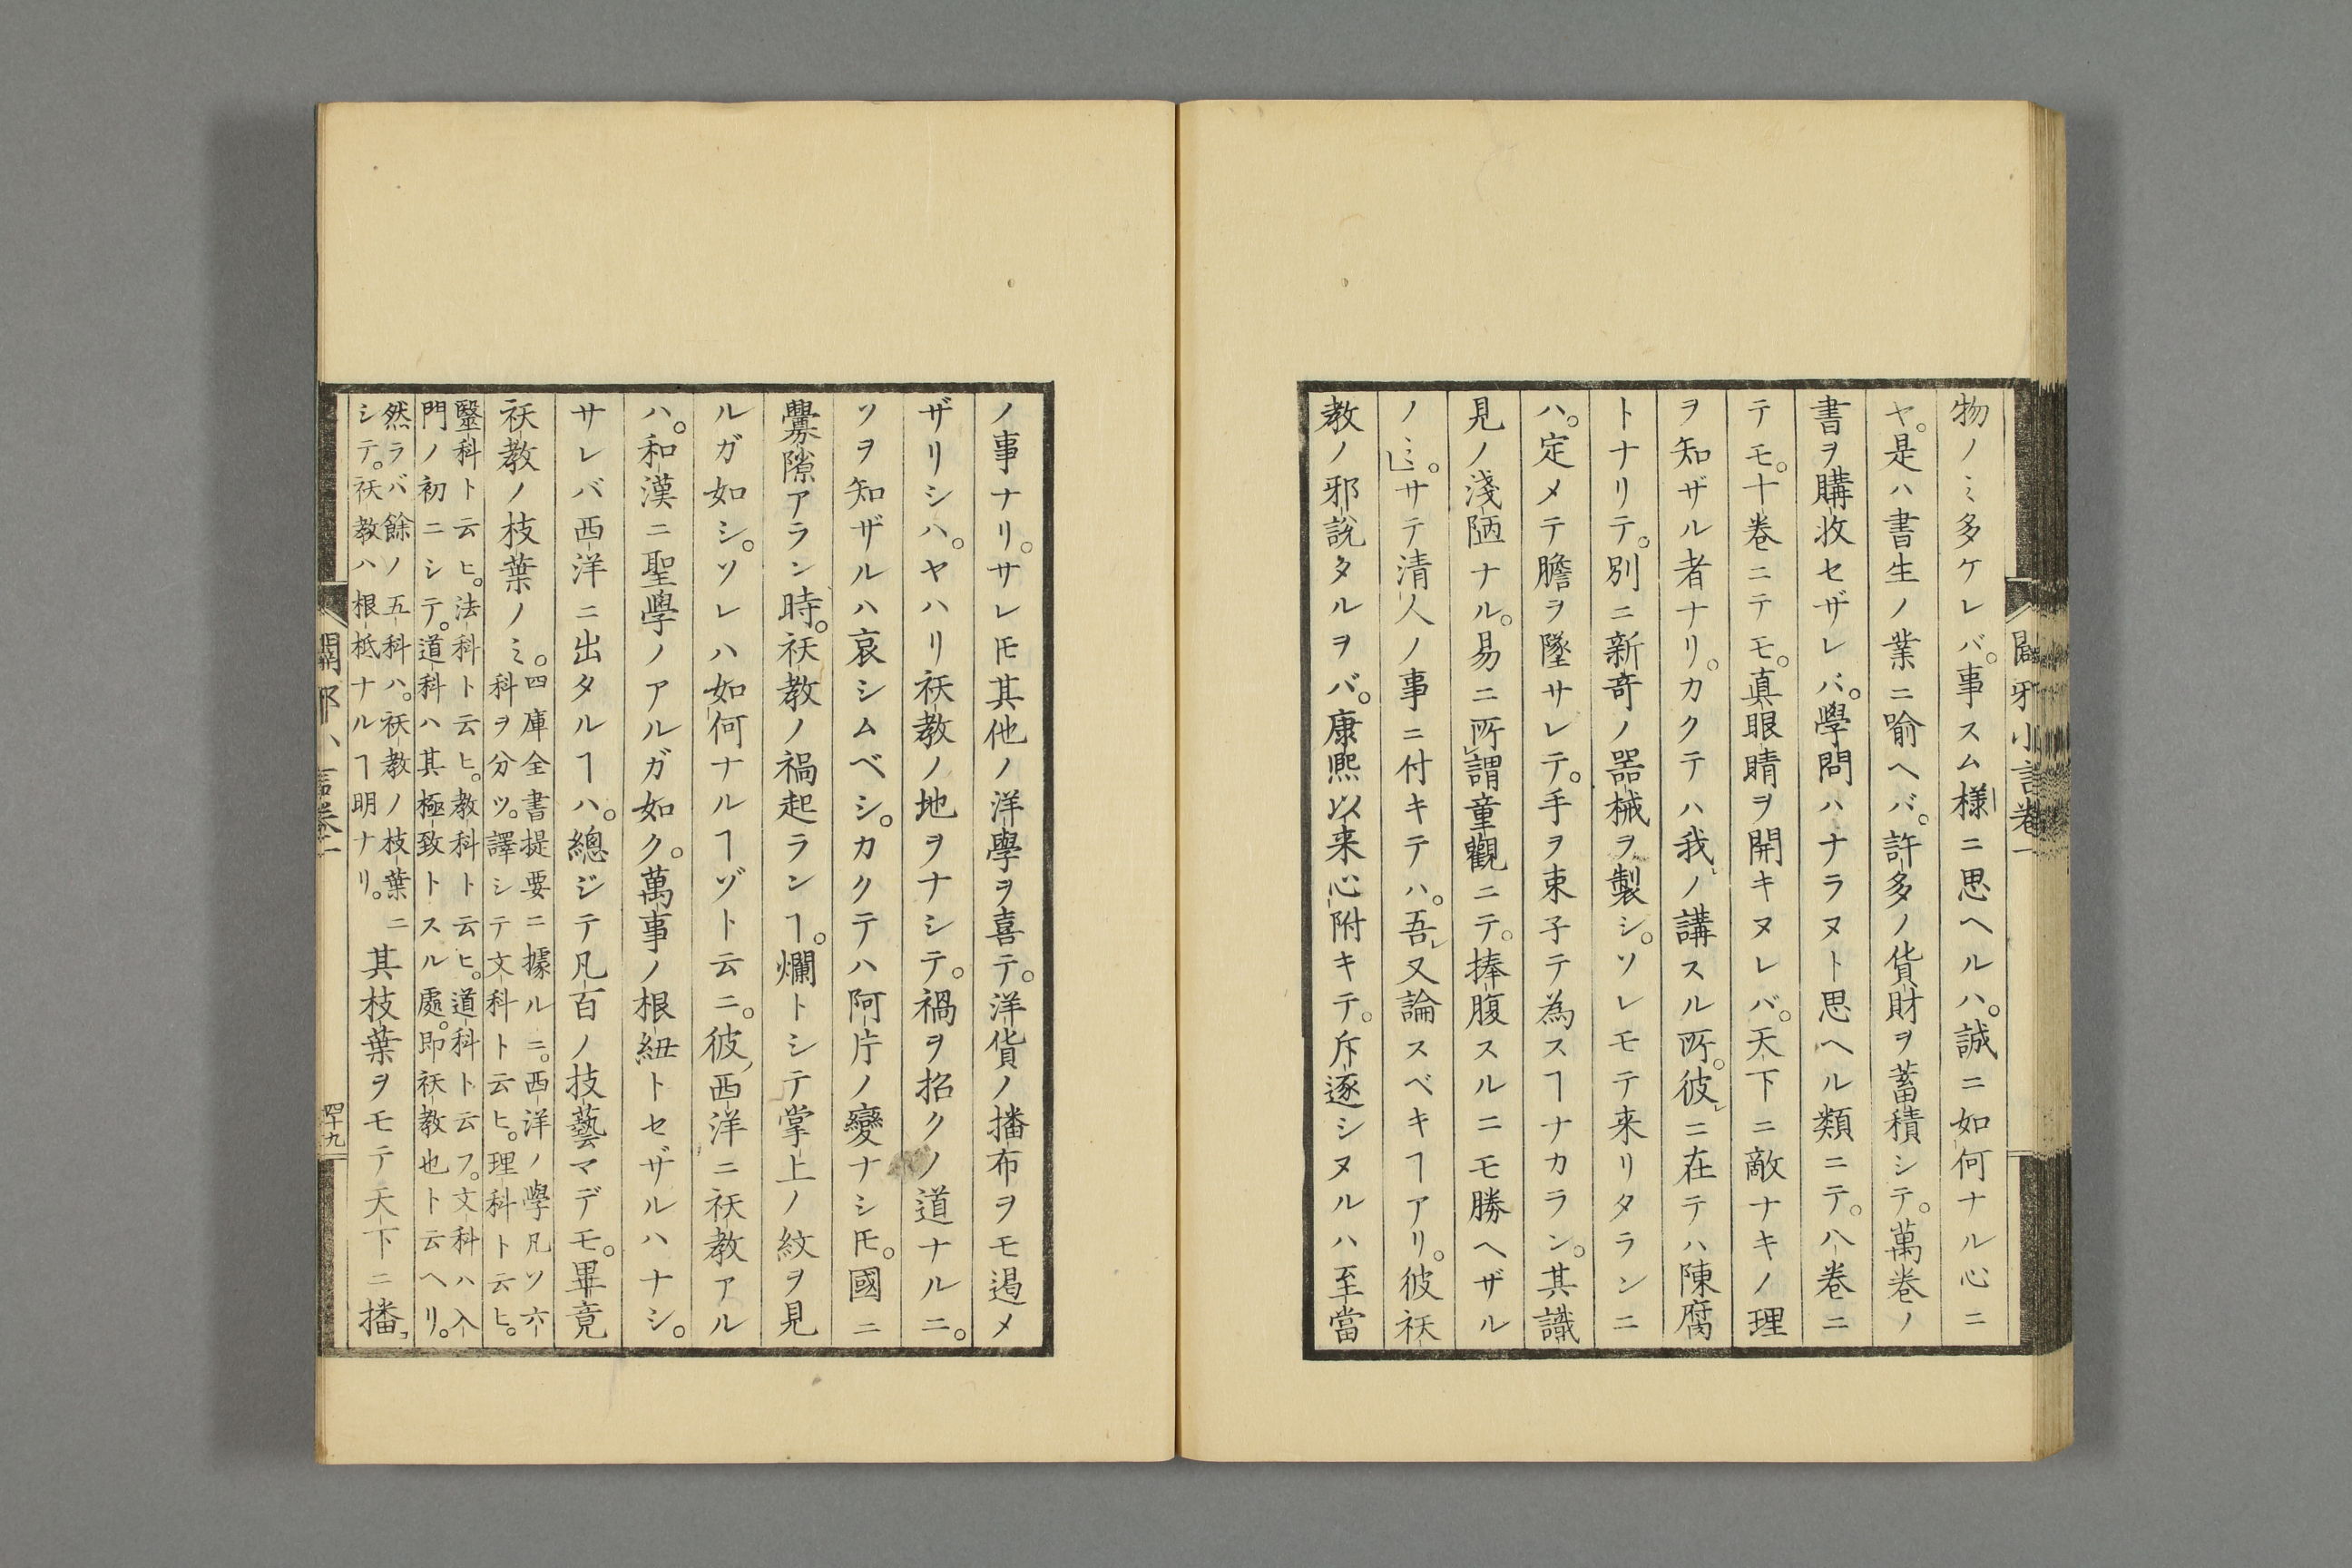 物ノミ多ケレバ。事スム樣ニ思ヘルハ。誠ニ如何ナル心ニ
ヤ。是ハ書生ノ業ニ喩ヘバ。許多ノ貨財ヲ蓄積シテ。萬卷ノ
書ヲ購收セザレバ。學問ハナラヌト思ヘル類ニテ。八卷ニ
テモ。十卷ニテモ。真眼睛ヲ開キヌレバ。天下ニ敵ナキノ理
ヲ知ザル者ナリ。カクテハ我ノ講スル所。彼ニ在テハ陳腐
トナリテ。別ニ新竒ノ器械ヲ製シ。ソレモテ来リタランニ
ハ。定メテ膽ヲ墜サレテ。手ヲ束子テ為スヿナカラン。其識
見ノ淺陋ナル。易ニ所謂童觀ニテ。捧腹スルニモ勝ヘザル
ノミ。サテ清人ノ事ニ付キテハ。吾又論スベキヿアリ。彼祅
教ノ邪説タルヲバ。康熙以来心附キテ。斥逐シヌルハ至當
ノ事ナリ。サレ𪜈其他ノ洋學ヲ喜テ。洋貨ノ播布ヲモ遏メ
ザリシハ。ヤハリ祅教ノ地ヲナシテ。禍ヲ招クノ道ナルニ。
ソヲ知ザルハ哀シムベシ。カクテハ阿片ノ變ナシ𪜈。國ニ
釁隙アラン時。祅教ノ禍起ランヿ。爛トシテ掌上ノ紋ヲ見
ルガ如シ。ソレハ如何ナルヿゾト云ニ。彼西洋ニ祅教アル
ハ。和漢ニ聖學ノアルガ如ク。萬事ノ根紐トセザルハナシ。
サレバ西洋ニ出タルヿハ。總ジテ凡百ノ技藝マデモ。畢竟
祅教ノ枝葉ノミ。四庫全書提要ニ據ルニ。西洋ノ學凡ソ六
科ヲ分ツ。譯シテ文科ト云ヒ。理科ト云ヒ。
毉科ト云ヒ。法科ト云ヒ。教科ト云ヒ。道科ト云フ。文科ハ入
門ノ初ニシテ。道科ハ其極致トスル處。即祅教也ト云ヘリ。
然ラバ餘ノ五科ハ。祅教ノ枝葉ニ
シテ。祅教ハ根柢ナルヿ明ナリ。其枝葉ヲモテ天下ニ播
四十九